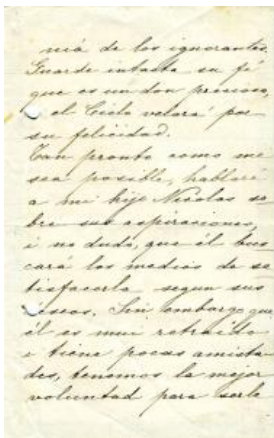 niá de los ignorantes.
Guarde intacta su fé
que es un don precioso,
el Cielo velará por
su felicidad.
Tan pronto como me
sea posible, hablaré
a mi hijo Nicolas so
bre sus aspiraciones,
i no dudo, que él bus
cará los medios de sa
tisfacerla segun sus
deseos. Sin embargo que
él es mui retraido
e tiene pocas amista
des, tenemos la mejor
voluntad para serle